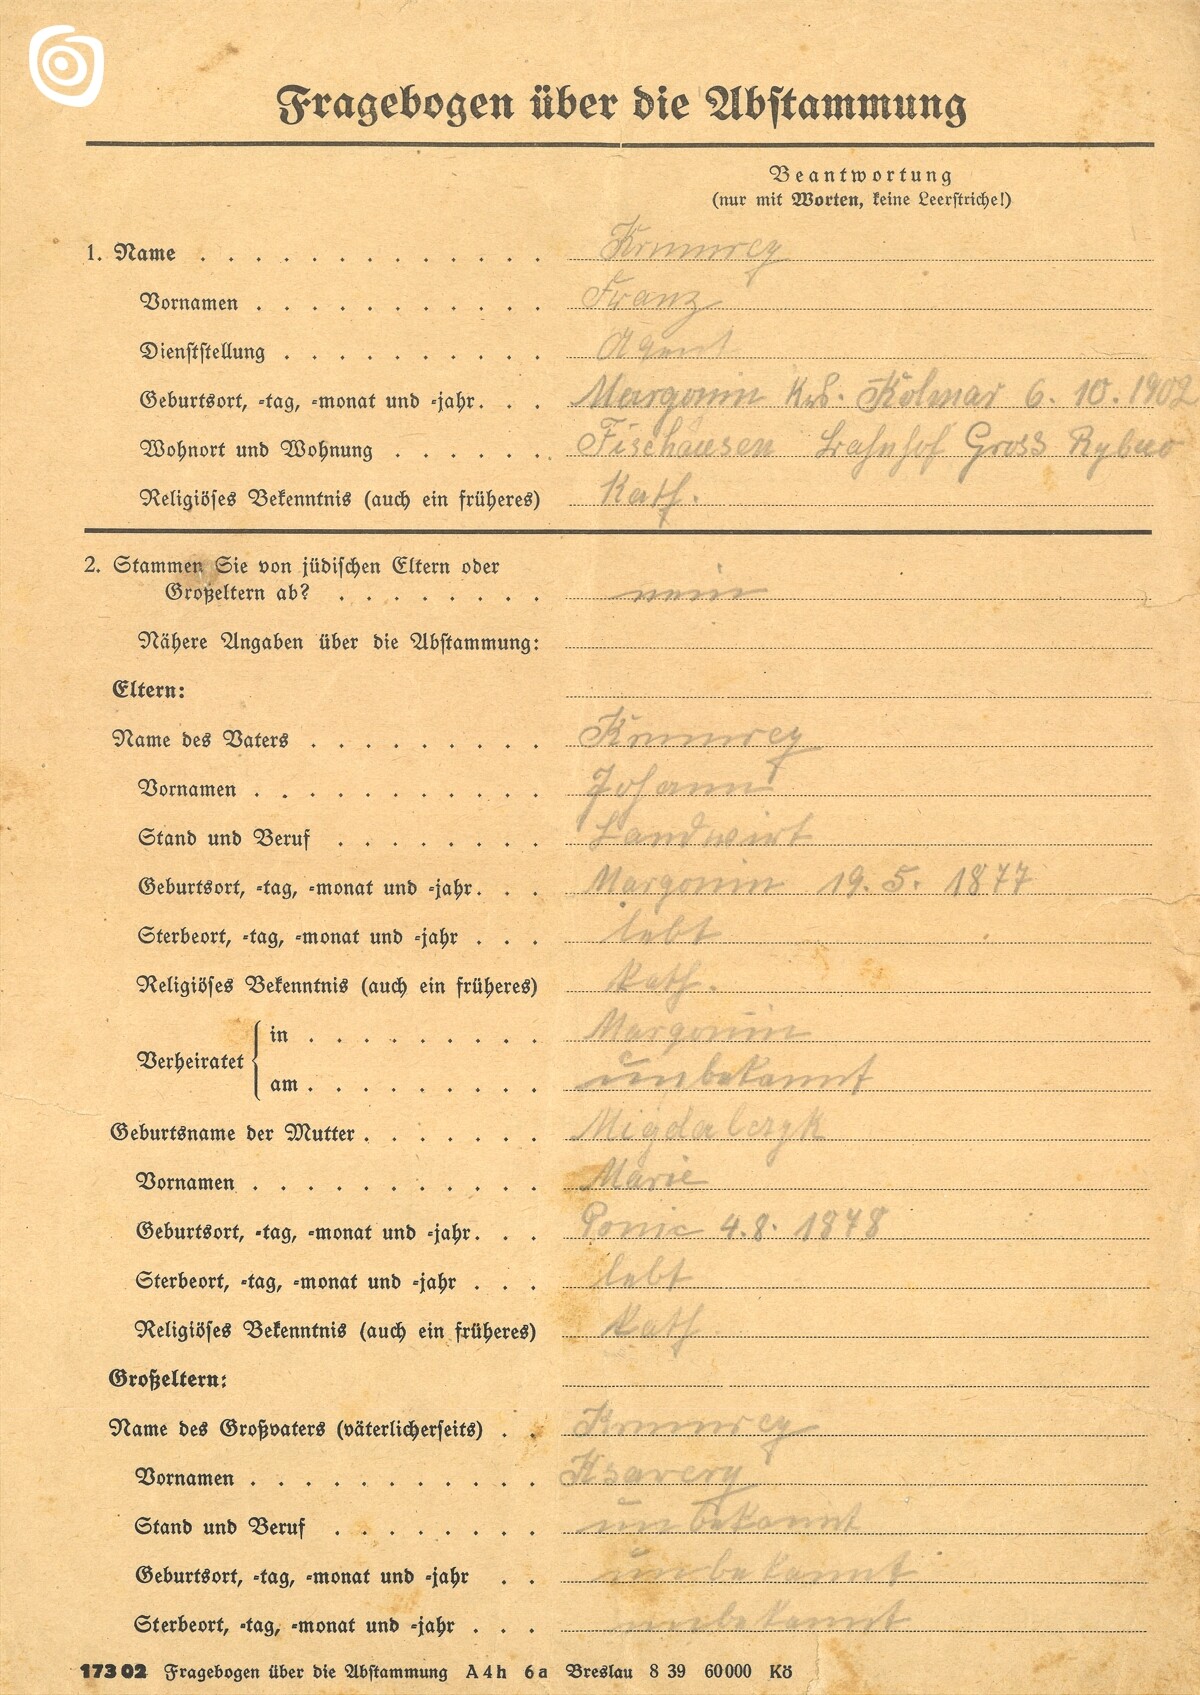 Fragebogen über die Abstammung
Beantwortung
(nur mit Worten, keine Leerstriche!)
1. Name . . . . . . . . . . . . .
Vornamen . . . . . . . . . . . Franz
Dienststellung . . . . . . . . . . Agent
Geburtsort, -tag, -monat und -jahr. . . Margonin Krs. Kolmar 6. 10. 1902
Wohnort und Wohnung . . . . . . Fischausen Bahnhof Gross Rybno
Religiöses Bekenntnis (auch ein früheres) Kath.
2. Stammen Sie von jüdischen Eltern oder
Großeltern ab? . . . . . . . . nein
Nähere Angaben über die Abstammung:
Eltern:
Name des Vaters . . . . . . . . .
Vornamen . . . . . . . . . . . Johann
Stand und Beruf . . . . . . . . Landwirt
Geburtsort, -tag, -monat und -jahr. . . Margonin 19. 5. 1877
Sterbeort, -tag, -monat und -jahr . . . lebt
Religiöses Bekenntnis (auch ein früheres) Kath.
Verheiratet { in . . . . . . . . . Margonin
am . . . . . . . . . unbekannt
Geburtsname der Mutter . . . . . . . Migdalczyk
Vornamen . . . . . . . . . . . Marie
Geburtsort, -tag, -monat und -jahr. . . 4. 8. 1878
Sterbeort, -tag, -monat und -jahr . . . lebt
Religiöses Bekenntnis (auch ein früheres) Kath.
Großeltern:
Name des Großvaters (väterlicherseits) . .
Vornamen . . . . . . . . . . . Ksavery
Stand und Beruf . . . . . . . . unbekannt
Geburtsort, -tag, -monat und -jahr . . unbekannt
Sterbeort, -tag, -monat und -jahr . . . unbekannt
173 02 Fragebogen über die Abstammung A 4 h 6 a Breslau 8 39 60 000 Kö